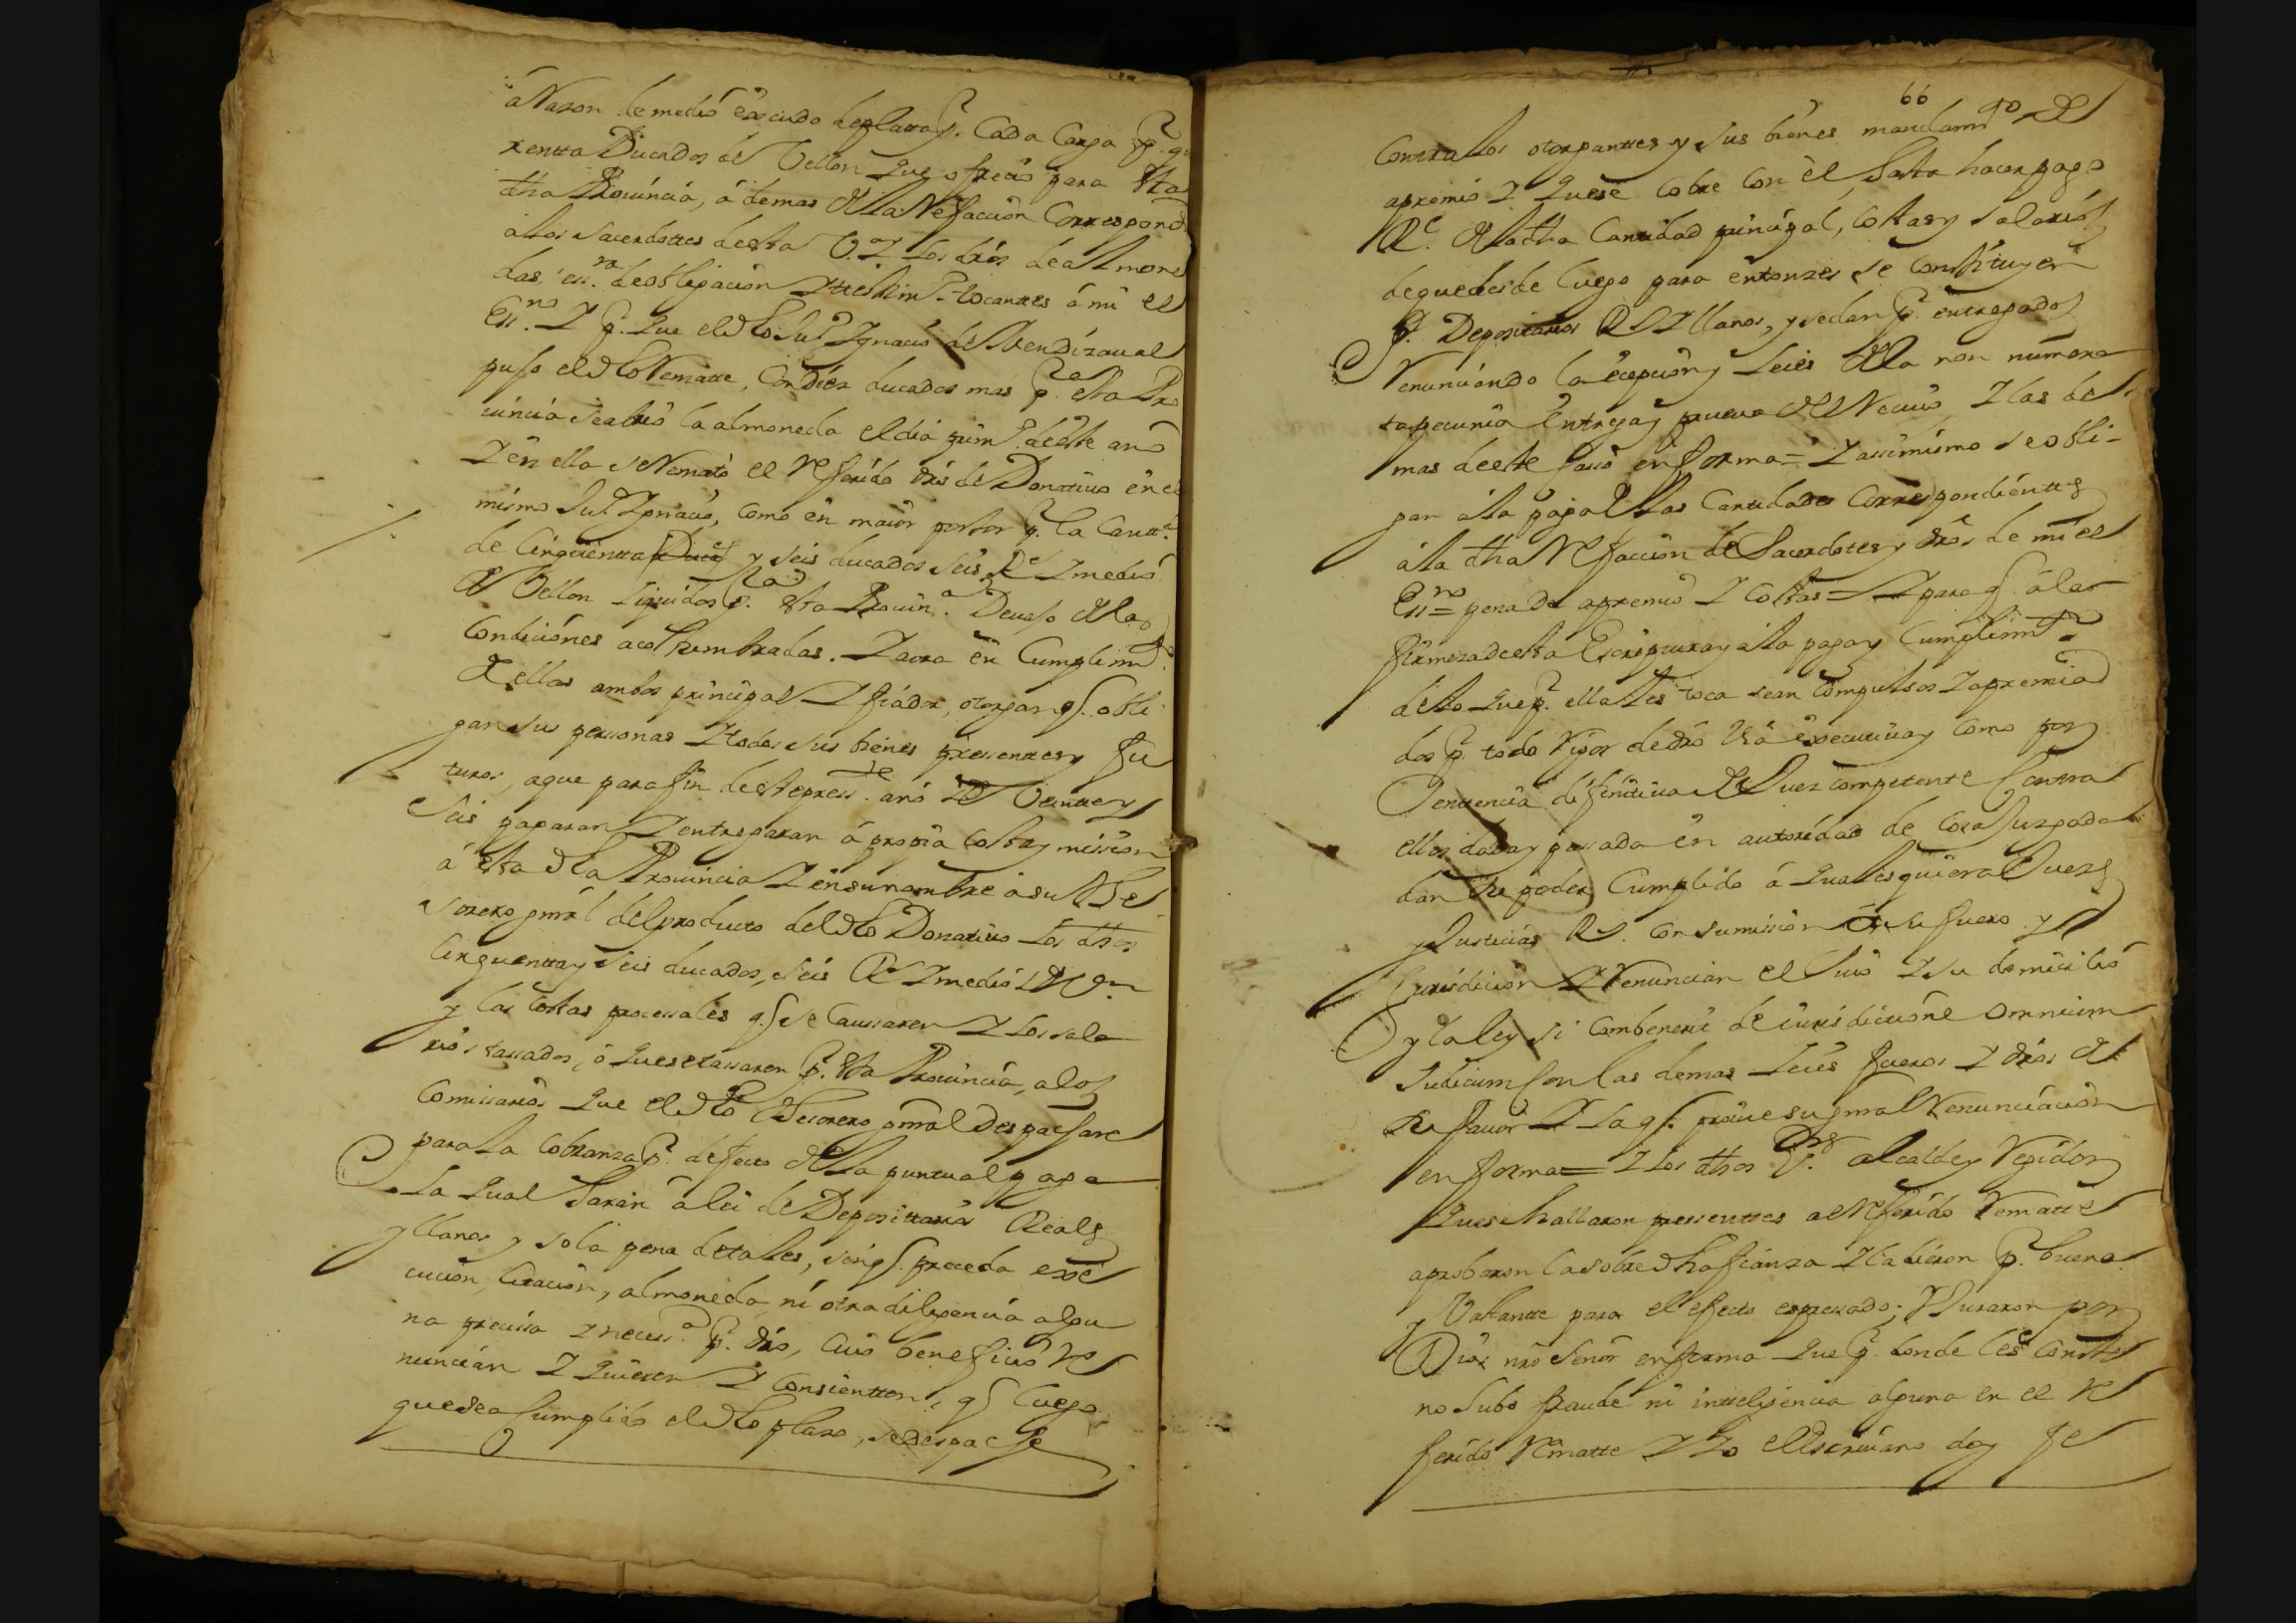 á Razon de medió êxcudo de platta p.r Cada Carga p.r qu
rentta Ducados de Vellon que ofreció para êsta
dha Prouincia, á demas de la Refaccion Correspond
a los Sacerdottes desta V.a y los drós de almone
das, ess.ra de obligacion y testim.o tocanttes á mi el
Ess.no y p.r que el dho Ju.o Ygnacio de Mendizaual
puso el dho Rematte, Con diéz ducados mas p.a esta Pro
uincia se abrió la almoneda el diá prim.o deste anó
y en ella se Remató el Referido drô de Donatiuo ên el
mismo Ju.o Ygnació, Como ên maior postor p.r la Cantt.d
de Cinquentta Duc.s y seis ducados seis R.s y medió
de Vellon liquidos p.a êsta Prouin.a Deuajo de las
Condiciónes acosttumbradas. Y aora ên Cumplim.to
de ellas ambos principal y fiádor, otorgan q.e obli
gan sus personas y todos sus biénes pressenttes y fu
turos, a que para fin de este press.te anó de Veintte y
Seis pagaran y entregaran á propia Costta y mission
á êsta dha Prouincia y ên su nombre a su The
sorero gnrâl del producto del dho Donatiuo los dhos
Cinquentta y Seis ducados, seis R.s y medió de V.on
y las Costas processales q.e se Caussaren y los sala
riós tassados, ó que se tassaren p.r êsta Prouincia, a los
Comissariós que el dho Thesorero gnrâl Despachare
para la Cobranza p.r defecto de la puntual paga
la qual harán á lei de Deposittariós Reales
y llanos y so la pena de tales, sin q.e preceda exe
cucion, Citacion, almoneda, ni otra diligencia algu
na precissa y necess.a p.r drô, Cuió beneficio Re
nuncian y quieren y Consientten, q.e luego
que sea Cumplido el dho plazo, se despache
66
Conttra los otorganttes y sus biênes mandam.to de
apremió y que se Cobre Con êl, hasta hacer pago
R.l de la dha Canttidad principal, Costas y Salariós
de que desde luego para êntonzes se Constituyen
p.r Depositarios R.s y llanos, y se dan p.r entregados
Renunciándo la êcepcion y leiés de la non numera
ta pecunia êntrega y prueua del Reciuó y las de
mas deste Caso en forma = Y assimismo se obli-
gan á la paga de las Canttidades Correspondienttes
á la dha Refaccion de Sacerdotes y drôs de mi el
Ess.no = pena de apremió y Costas = Y para q.e á la
firmeza desta Escriptura y á la paga y Cumplim.to
de lo que p.r ella les toca sean Compulsos y apremia
dos p.r todo rigor de drô Viá êxecutiua y Como por
Sentencia difinitiua de Juez competente Contra
ellos dada y passada ên autoridad de Cosa Juzgada
dan su poder Cumplido á qualesquiéra Juezes
y Justicias R.s Con sumission a su fuero y
Jurisdicion y Renuncian el Suió y su domicilió
y la ley si Combenerit de iurisdictiónê omnium
Judicum Con las demas leiés fueros y drôs de
su fauor y la q.e prohiue su gnrâl Renunciación
en forma = Y los dhos S.res alcalde y Regidor
que se hallaron pressenttes al Referido Rematte
aprobaron la sobredha fianza y la diéron p.r buena
y Vastantte para el efecto expresado; Y Juraron por
Dios nrô Señor en forma que p.r donde les Constte
no hubo fraude ni intteligencia alguna en el Re
ferido Rematte y Yo el Escriuano doy fe